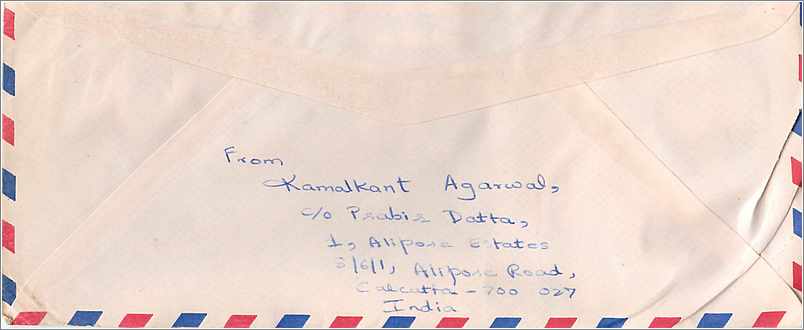 From
Kamalkant Agarwal,
c/o Prabir Datta,
1, Alipore Estates
8/6/1, Alipore Road,
Calcutta - 700 027
India